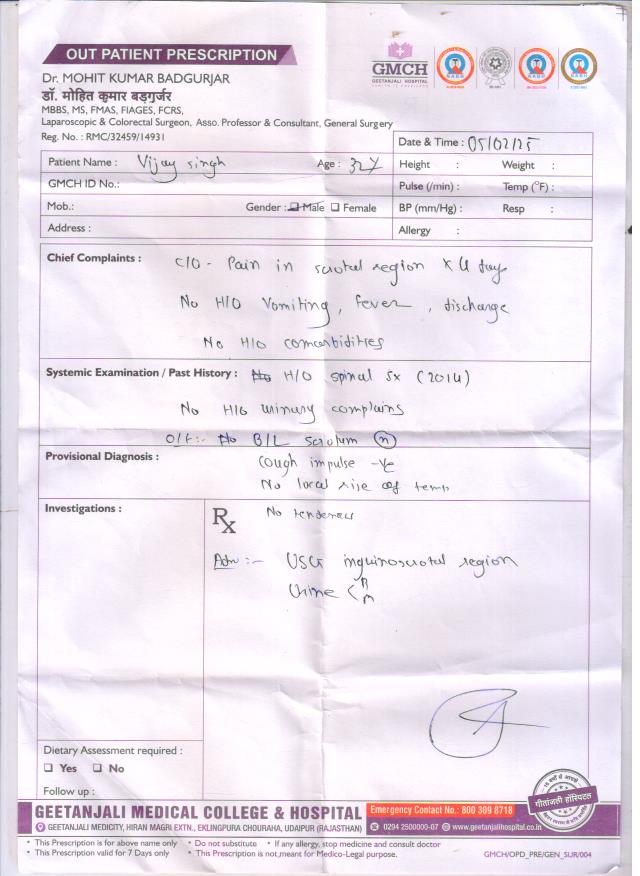 OUT PATIENT PRESCRIPTION
GMCH
GEETANJALI HOSPITAL
Dr. MOHIT KUMAR BADGURJAR
डॉ. मोहित कुमार बड़गुर्जर
MBBS, MS, FMAS, FIAGES, FCRS,
Laparoscopic & Colorectal Surgeon, Asso. Professor & Consultant, General Surgery
Reg. No. : RMC/32459/14931
Date & Time : 05/02/25
Patient Name : Vijay singh Age : 32Y
Height : Weight :
GMCH ID No.:
Pulse (/min) : Temp (°F) :
Mob.: Gender : Male Female
BP (mm/Hg) : Resp :
Address :
Allergy :
Chief Complaints : C/O - Pain in scrotal region x 4 day
No H/O Vomiting, fever, discharge
No H/O comorbidities
Systemic Examination / Past History : No H/O spinal sx (2014)
No H/O urinary complains
O/E:- No B/L scrotum (n)
Provisional Diagnosis : Cough impulse -ve
No local rise of temp
Investigations : Rx No tenderness
Adv :- USG inguinoscrotal region
Urine < R M
Dietary Assessment required :
Yes No
Follow up :
गीतांजली हॉस्पिटल
GEETANJALI MEDICAL COLLEGE & HOSPITAL
Emergency Contact No.: 800 309 8718
GEETANJALI MEDICITY, HIRAN MAGRI EXTN., EKLINGPURA CHOURAHA, UDAIPUR (RAJASTHAN)
0294 2500000-07 www.geetanjalihospital.co.in
• This Prescription is for above name only • Do not substitute • If any allergy, stop medicine and consult doctor
• This Prescription valid for 7 Days only • This Prescription is not meant for Medico-Legal purpose. GMCH/OPD_PRE/GEN_SUR/004